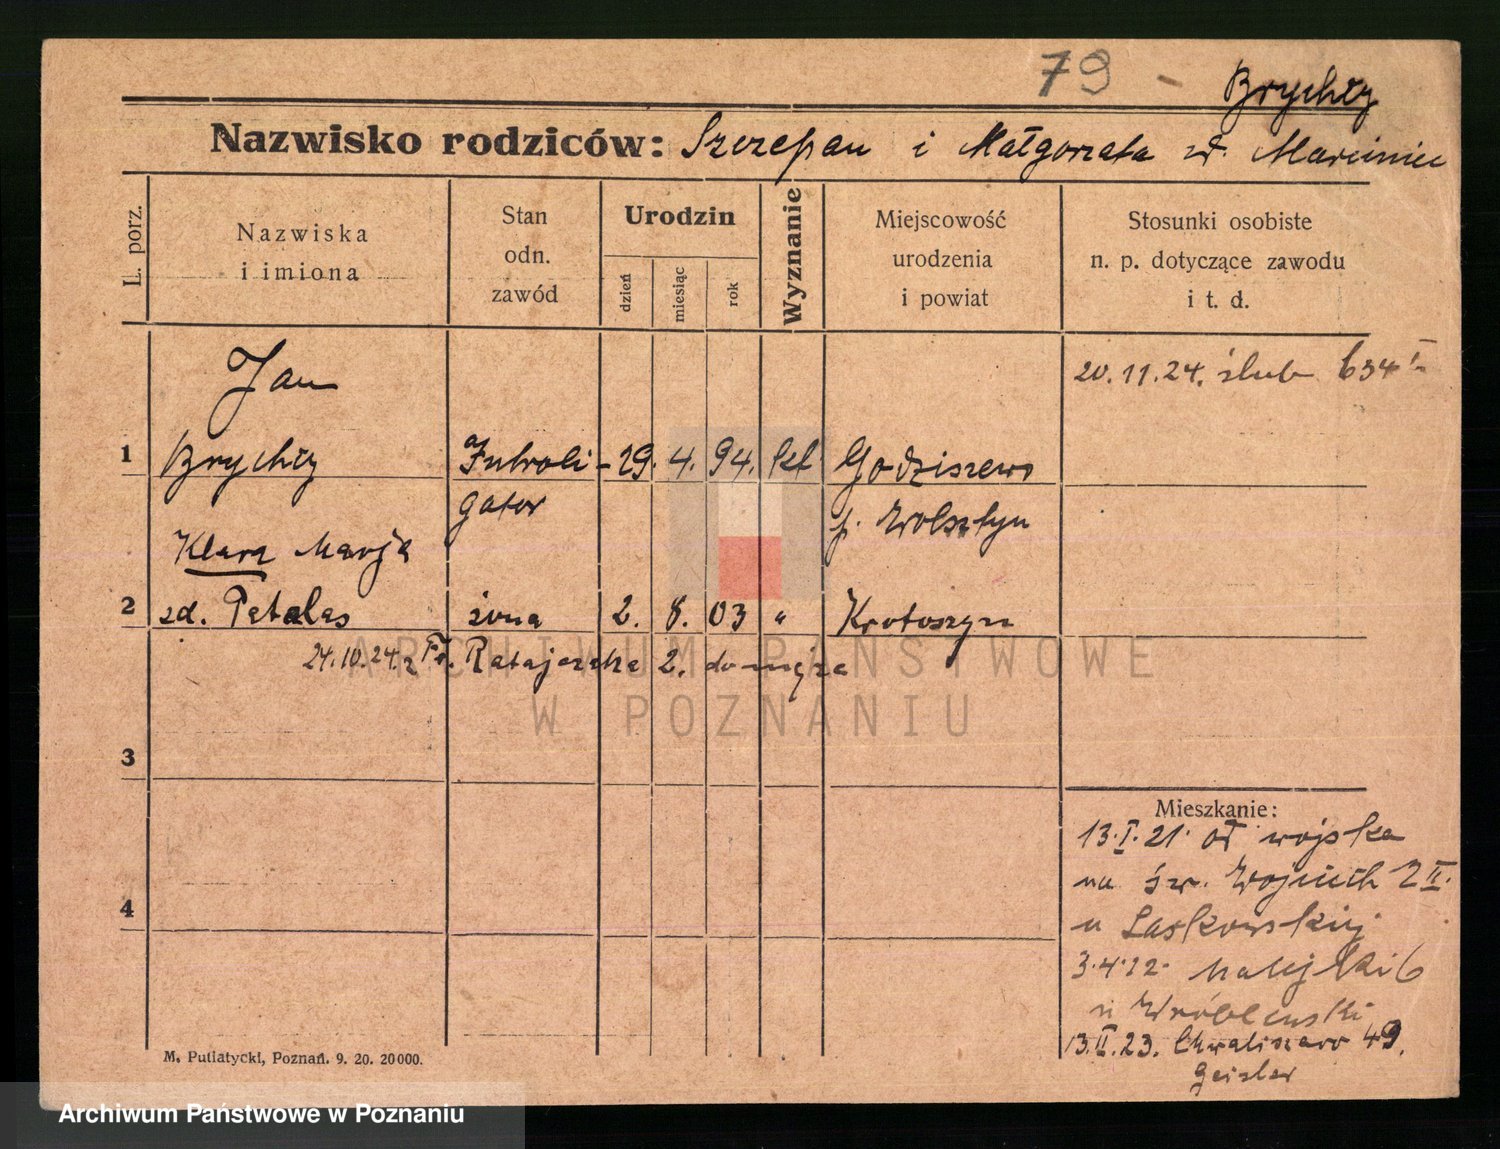 79 - Brychły
Nazwisko rodziców: Szczepan i Małgorzata zd. Marciniec
L. porz.
Nazwiska
i imiona
Stan
odn.
zawód
Urodzin
dzień
miesiąc
rok
Wyznanie
Miejscowość
urodzenia
i powiat
Stosunki osobiste
n. p. dotyczące zawodu
i t. d.
Jan
20.11.24. ślub 634
1 Brychły Introli- 29. 4. 94. kt Godziszewo
gator p. Wolsztyn
Klara Marja
2 zd. Patalas żona 2. 8. 03 " Krotoszyn
24.10.24. z Fr. Ratajczaka 2. do męża
3
4
Mieszkanie:
13.I.21. od wojska
na św. Wojciech 2 II.
u Laskowskiej
3.4.22. Matejki 6
u Wróblewski
13.II.23. Chwaliszewo 49.
Geisler
M. Putiatycki, Poznań. 9. 20. 20000.
ARCHIWUM PAŃSTWOWE
W POZNANIU
Archiwum Państwowe w Poznaniu